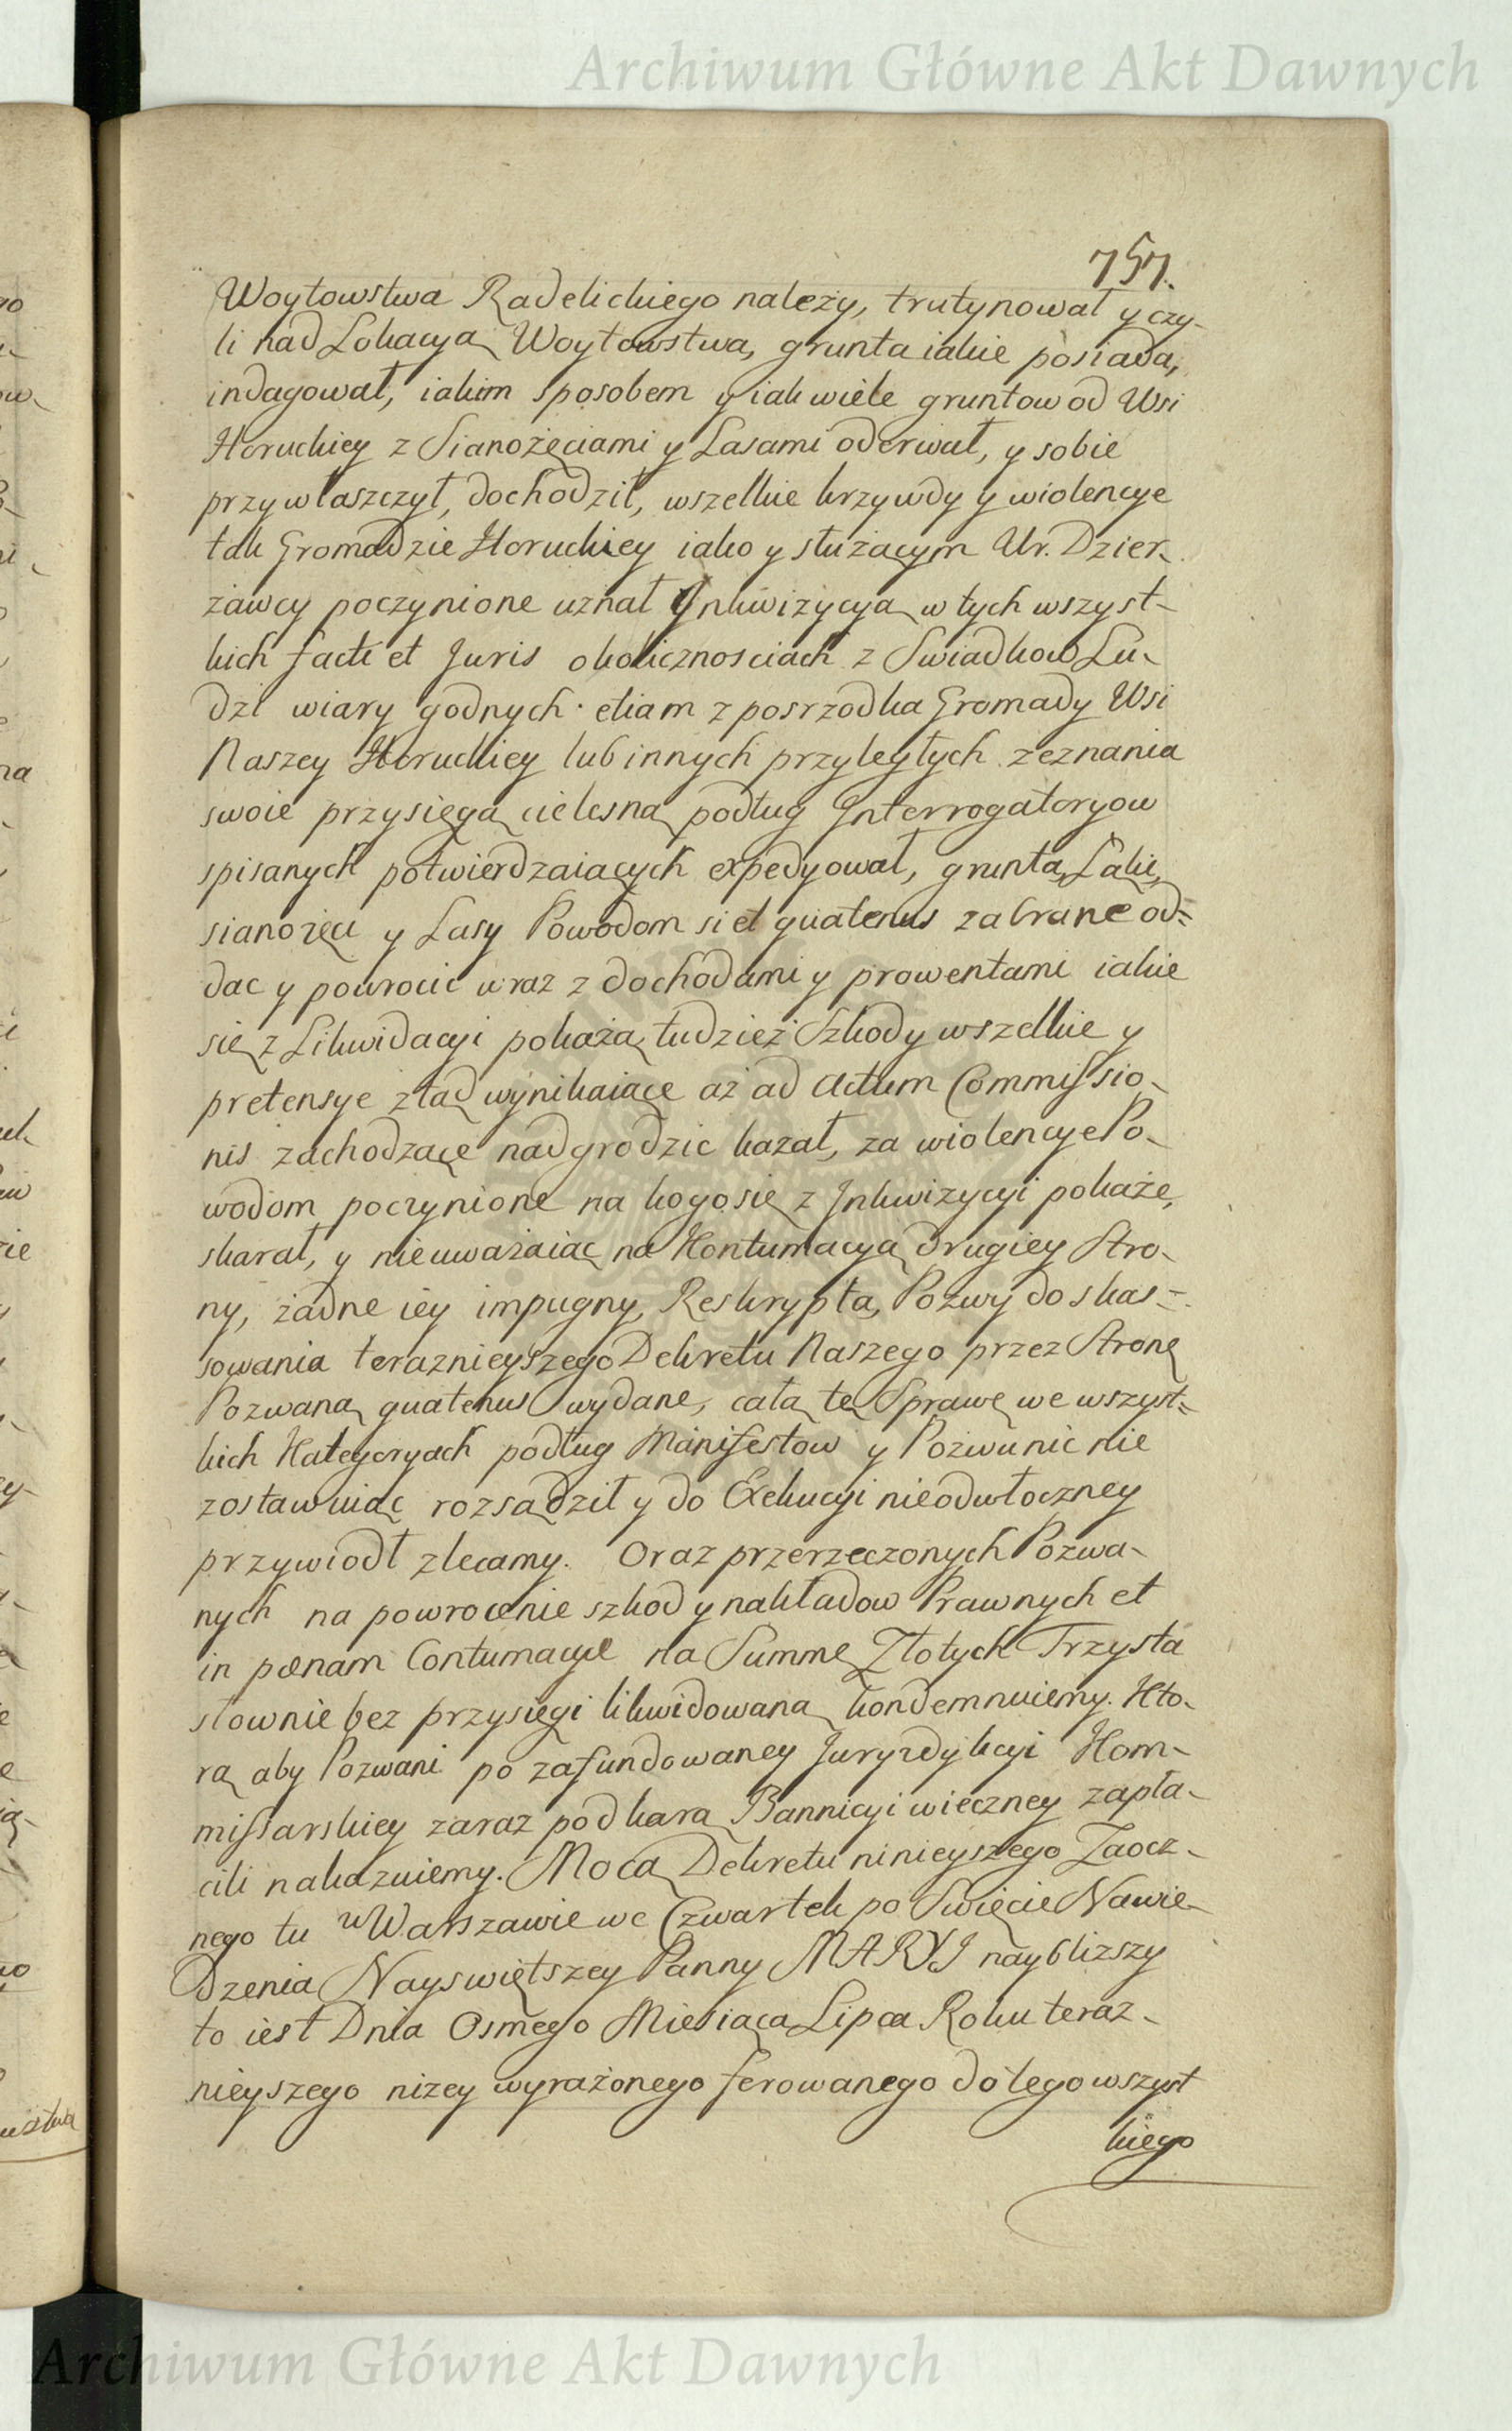 Archiwum Główne Akt Dawnych
757.
Woytowstwa Radelickiego należy, trutynował y czy-
li nad Lokacyą Woytowstwa, grunta iakie posiada,
indagował, iakim sposobem y iak wiele gruntow od Wsi
Horuckiey z Sianożęciami y Lasami oderwał, y sobie
przywłaszczył, dochodził, wszelkie krzywdy y wiolencye
tak Gromadzie Horuckiey iako y służącym Ur. Dzier-
zawcy poczynione uznał Inkwizycyą w tych wszyst-
kich facti et Juris okolicznosciach z Swiadkow Lu-
dzi wiary godnych etiam z posrzodka Gromady Wsi
Naszey Horuckiey lub innych przyległych zeznania
swoie przysięgą cielesną podług Interrogatoryow
spisanych potwierdzaiących expedyował, grunta, Łąki,
sianożęci y Lasy Powodom si et quatenus zabrane od=
dac y powrocic wraz z dochodami y prowentami iakie
się z Likwidacyi pokażą tudzież Szkody wszelkie y
pretensye ztąd wynikaiące aż ad Actum Commissio-
nis zachodzące nadgrodzic kazał, za wiolencye Po-
wodom poczynione na kogo się z Inkwizycyi pokaże,
skarał, y nieuważaiąc na Kontumacyą drugiey Stro-
ny, żadne iey impugny, Reskrypta, Pozwy do skas=
sowania teraznieyszego Dekretu Naszego przez Stronę
Pozwaną quatenus wydane, całą tę Sprawę we wszyst=
kich Kategoryach podług Manifestow y Pozwu nic nie
zostawuiąc rozsądził y do Exekucyi nieodwłoczney
przywiodł zlecamy. Oraz przerzeczonych Pozwa-
nych na powrocenie szkod y nakładow Prawnych et
in pœnam Contumaciæ na Summę Złotych Trzysta
słownie bez przysięgi likwidowaną kondemnuiemy. Kto-
rą aby Pozwani po zafundowaney Juryzdykcyi Kom-
missarskiey zaraz pod karą Bannicyi wieczney zapła-
cili nakazuiemy. Mocą Dekretu ninieyszego Zaocz-
nego tu w Warszawie we Czwartek po Swięcie Nawie-
dzenia Nayswiętszey Panny MARYI naybliższy
to iest Dnia Osmego Miesiąca Lipca Roku teraz-
nieyszego niżey wyrażonego ferowanego do tego wszyst
kiego
Archiwum Główne Akt Dawnych